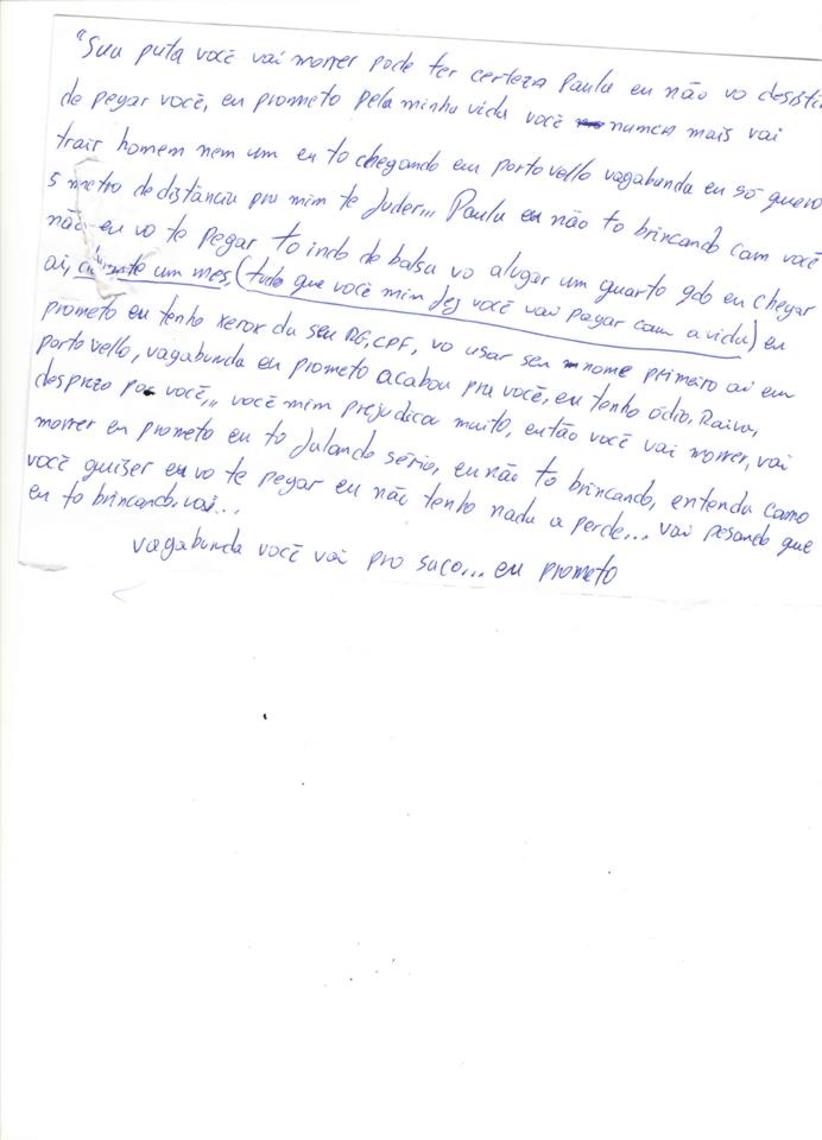 "Sua puta você vai morrer pode ter certeza Paula eu não vo desisti
de pegar você, eu prometo pela minha vida você numca mais vai
trair homem nem um eu to chegando em porto vello vagabunda eu só quero
5 metro de distância pra mim te fuder... Paula eu não to brincando com você
não eu vo te pegar to indo de balsa vo alugar um quarto qdo eu chegar
ai, durante um mes, (tudo que você mim fez você vai pagar com a vida) eu
prometo eu tenho xerox da seu RG, CPF, vo usar seu nome primeiro ai em
porto vello, vagabunda eu prometo acabou pra você, eu tenho ódio, Raiva,
desprezo por você,,, você mim prejudicou muito, então você vai morrer, vai
morrer eu prometo eu to falando sério, eu não to brincando, entenda como
você quiser eu vo te pegar eu não tenho nada a perde... vai pesando que
eu to brincando. vai...
vagabunda você vai pro saco... eu prometo